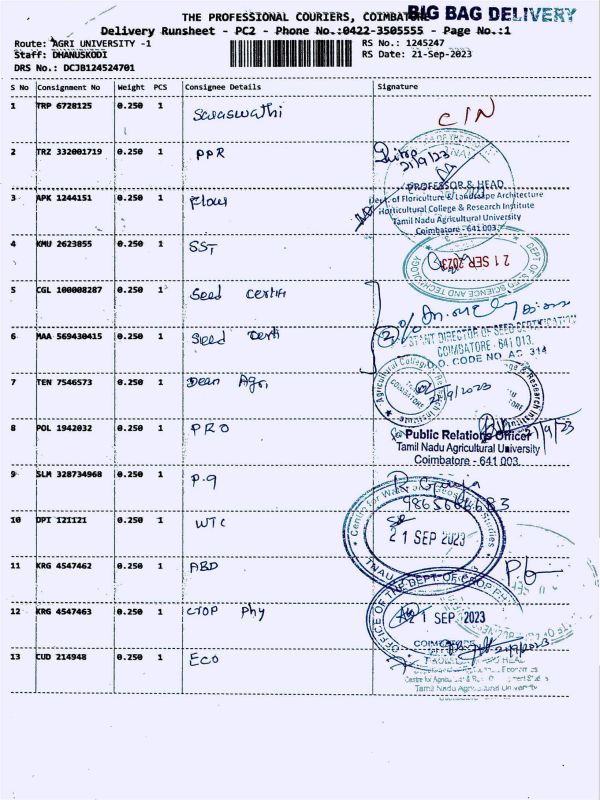 THE PROFESSIONAL COURIERS, COIMBATORE
BIG BAG DELIVERY
Delivery Runsheet - PC2 - Phone No.:0422-3505555 - Page No.:1
Route: AGRI UNIVERSITY -1
RS No.: 1245247
Staff: DHANUSKODI
RS Date: 21-Sep-2023
DRS No.: DCJB124524701
S No Consignment No Weight PCS Consignee Details Signature
1 TRP 6728125 0.250 1 Saraswathi
C/N
2 TRZ 332001719 0.250 1 PPR
21/9/23
PROFESSOR & HEAD
Dept. of Floriculture & Landscape Architecture
3 APK 1244151 0.250 1 Flour
Horticultural College & Research Institute
Tamil Nadu Agricultural University
Coimbatore - 641 003.
4 KMU 2623855 0.250 1 SST
21 SEP 2023
DEPT. OF SEED SCIENCE AND TECHNOLOGY
5 CGL 100008287 0.250 1 Seed certifi
6 MAA 569430415 0.250 1 Seed certi
2
STANT DIRECTOR OF SEED CERTIFICATION
COIMBATORE - 641 013.
D.O. CODE NO AG 314
7 TEN 7546573 0.250 1 Dean Agri,
Agricultural College & Research Institute
COIMBATORE
21/9/2023
8 POL 1942032 0.250 1 PRO
21/9/23
Public Relations Officer
Tamil Nadu Agricultural University
Coimbatore - 641 003.
9 SLM 328734968 0.250 1 P.g
10 DPT 121121 0.250 1 WTC
21 SEP 2023
TNAU
11 KRG 4547462 0.250 1 ABD
OFFICE OF THE DEPT. OF CROP PHY
12 KRG 4547463 0.250 1 Crop Phy
21 SEP 2023
COIMBATORE
21/9/2023
13 CUD 214948 0.250 1 Eco